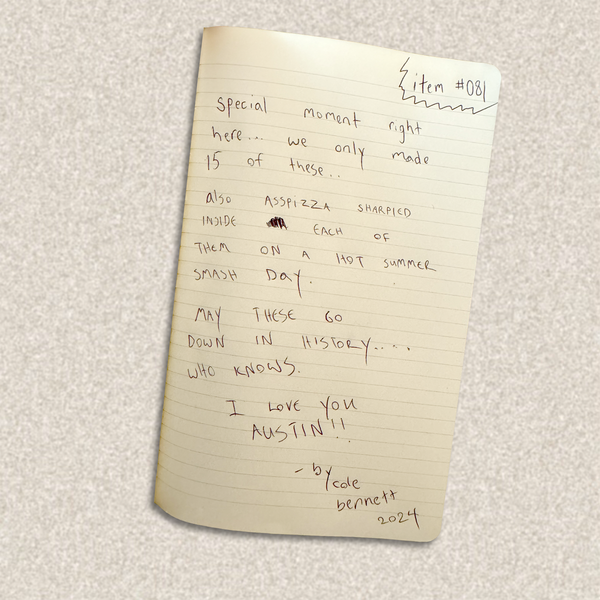 item #081
special moment right
here... we only made
15 of these..
also ASSPIZZA SHARPIED
INSIDE EACH OF
THEM ON A HOT SUMMER
SMASH Day.
MAY THESE GO
DOWN IN HISTORY....
WHO KNOWS.
I LOVE YOU
AUSTIN!!
- by cole
bennett
2024